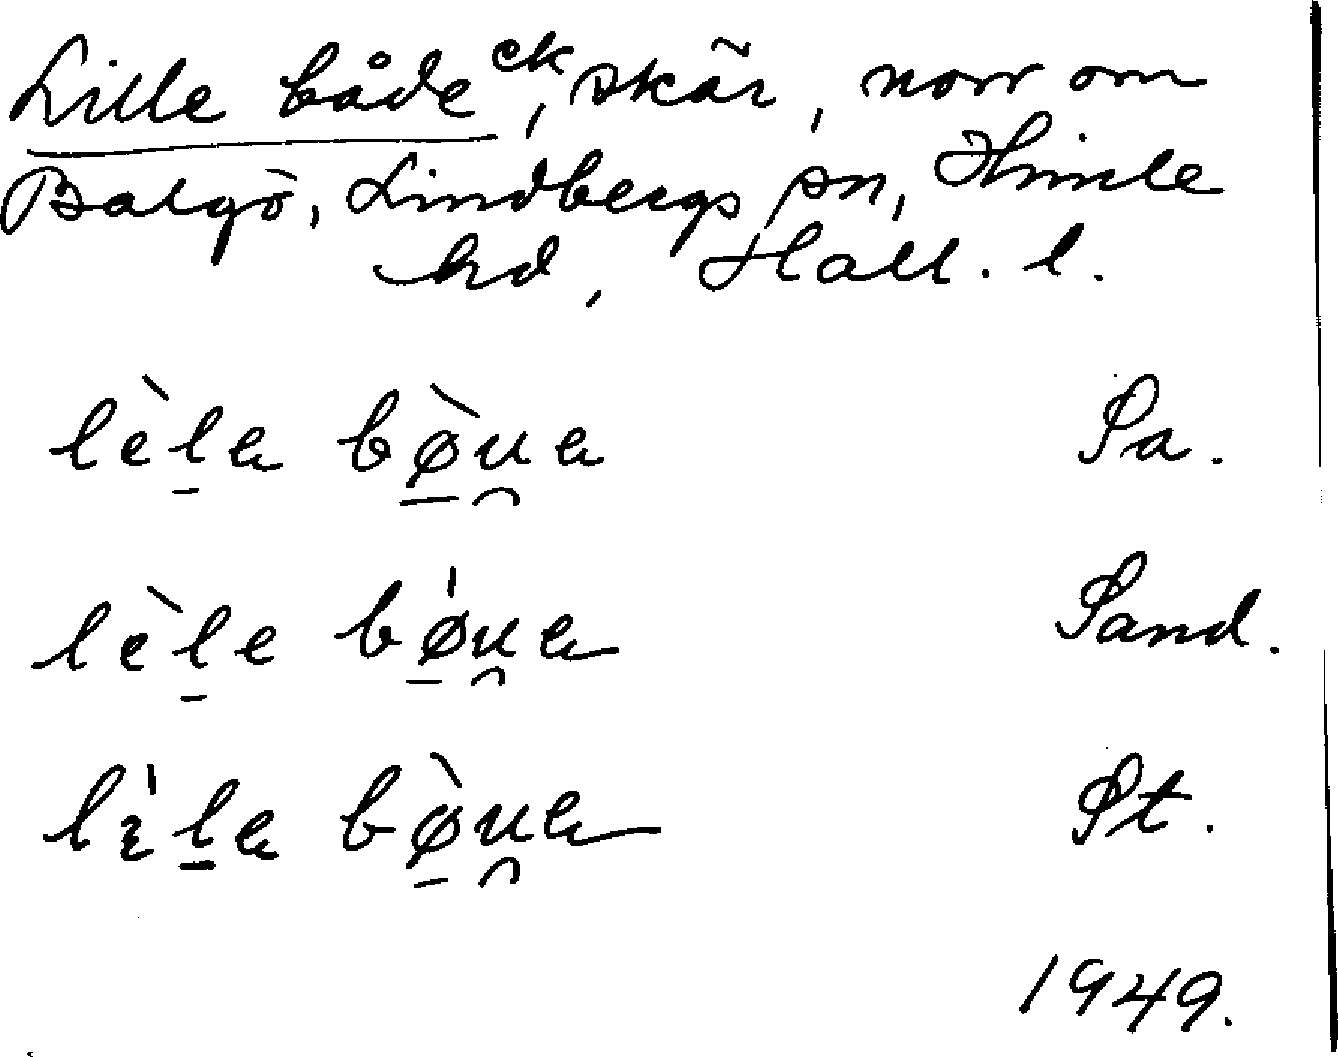 Lille både ek, skär, norr om
Balgö, Lindbergs sn, Himle
hd, Hall. l.
lè̱la bø̱̀u̯a Sa.
lè̱le bǿ̱u̯a Sand.
lɩ́ḻa bø̱̀u̯a St.
1949.